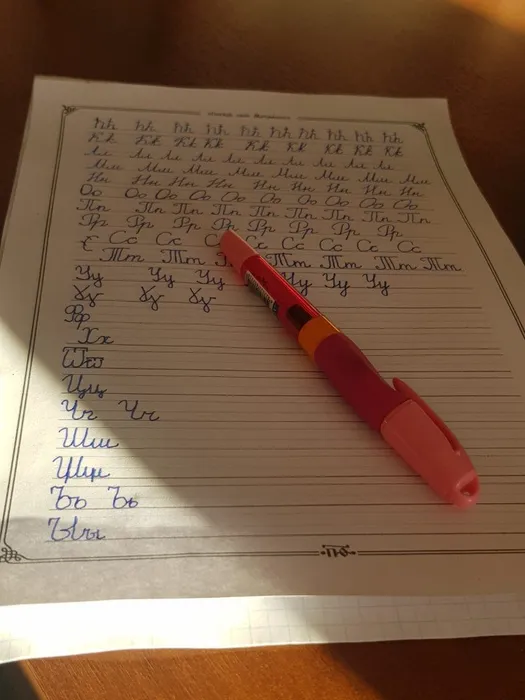 Ћћ Ћћ Ћћ Ћћ Ћћ Ћћ Ћћ Ћћ Ћћ Ћћ
Кк Кк Кк Кк Кк Кк Кк Кк Кк
Лл Лл Лл Лл Лл Лл Лл Лл Лл Лл
Мм Мм Мм Мм Мм Мм Мм Мм
Нн Нн Нн Нн Нн Нн Нн Нн Нн
Оо Оо Оо Оо Оо Оо Оо Оо Оо Оо
Пп Пп Пп Пп Пп Пп Пп Пп Пп
Рр Рр Рр Рр Рр Рр Рр Рр
Сс Сс Сс Сс Сс Сс Сс Сс
Тт Тт Т Тт Тт Тт Тт
Уу Уу Уу Уу Уу Уу
Ꙋꙋ Ꙋꙋ Ꙋꙋ
Фф
Хх
Ѿѿ
Цц
Чч Чч
Шш
Щщ
Ъъ Ъъ
Ыы